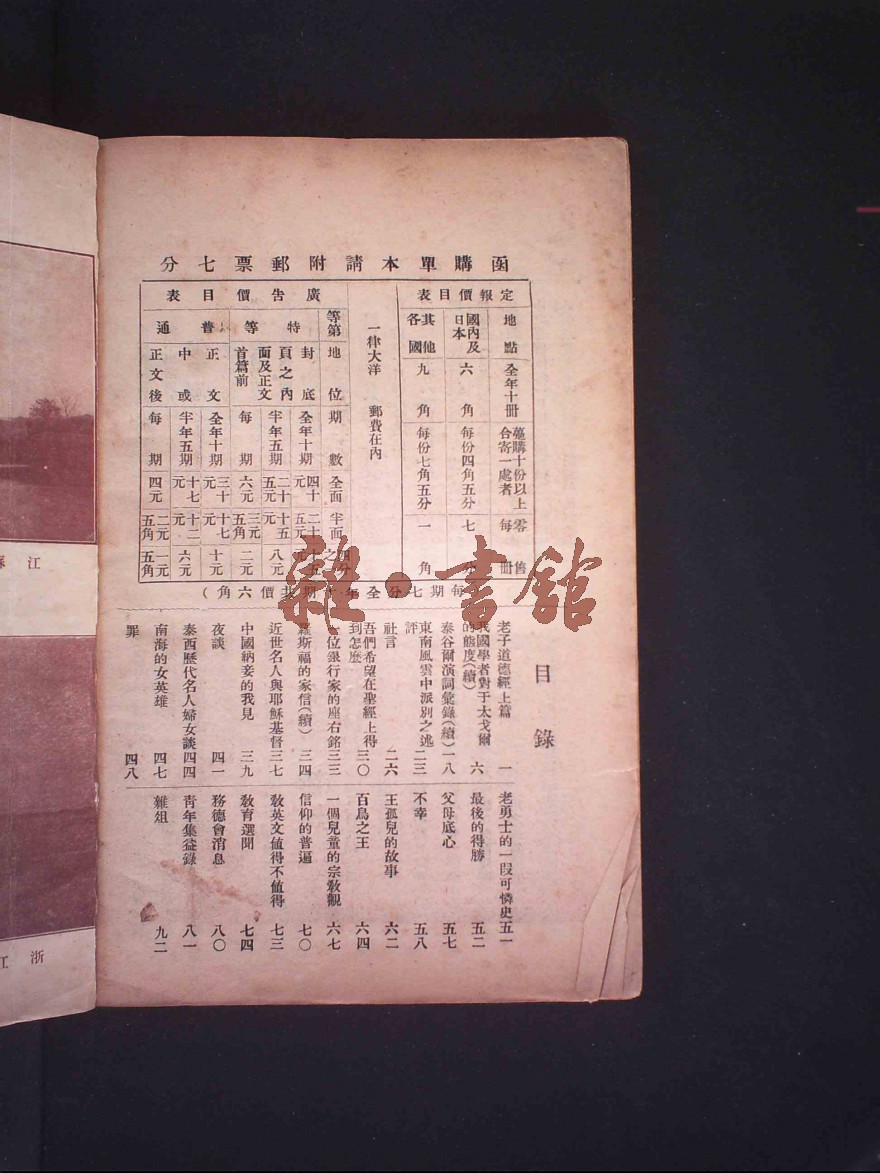 函購單本請附郵票七分
定報價目表
地點 全年十冊 躉購十份以上合寄一處者 零售每冊
國內及日本 六角 每份四角五分 七分
其他各國 九角 每份七角五分 一角
一律大洋 郵費在內
廣告價目表
等第 地位 期數 全面 半面 四分之一
特等 封底頁之內面及正文首篇前
全年十期 四十元 二十五元 十五元
半年五期 二十五元 十五元 八元
每期 六元 三元五角 二元
普通 正文中或正文後
全年十期 三十元 十七元 十元
半年五期 十七元 十二元 六元
每期 四元 二元五角 一元五角
每期七分全年十期共價六角)
目錄
老子道德經上篇 一
我國學者對于太戈爾的態度(續) 六
泰谷爾演詞彙錄(續) 一八
東南風雲中派別之述評 二三
社言 二六
吾們希望在聖經上得到怎麼 三〇
一位銀行家的座右銘 三三
羅斯福的家信(續) 三四
近世名人與耶穌基督 三七
中國納妾的我見 三九
夜談 四一
泰西歷代名人婦女談 四四
南海的女英雄 四七
罪 四八
老勇士的一段可憐史 五一
最後的得勝 五二
父母底心 五七
不幸 五八
王孤兒的故事 六二
百鳥之王 六四
一個兒童的宗敎觀 六七
信仰的普遍 七〇
敎英文値得不値得 七三
敎育選聞 七四
務德會消息 八〇
靑年集益錄 八一
雜俎 九二
雜·書館
江
浙江